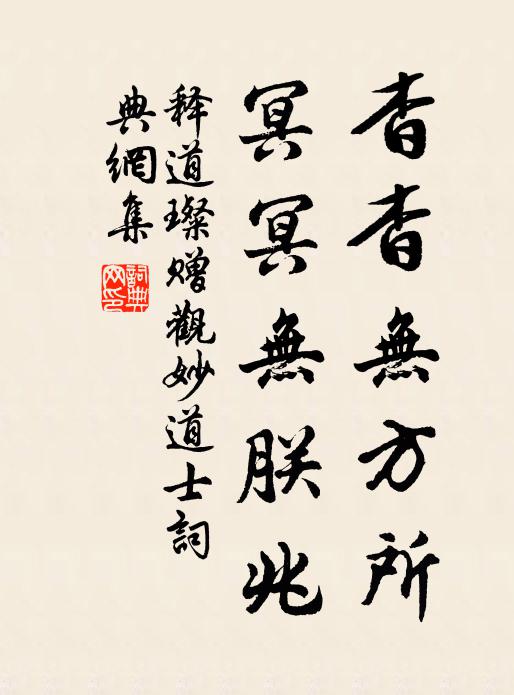 杳杳無方所
冥冥無朕兆
释道璨赠觀妙道士詞
典網集
詞典
网印